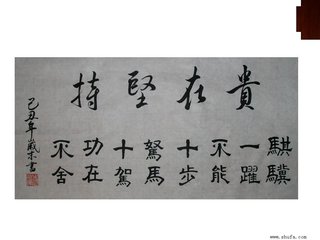 貴在堅持
騏驥
一躍
不能
十步
駑馬
十駕
功在
不舍
己丑年 書
www.shufa.com